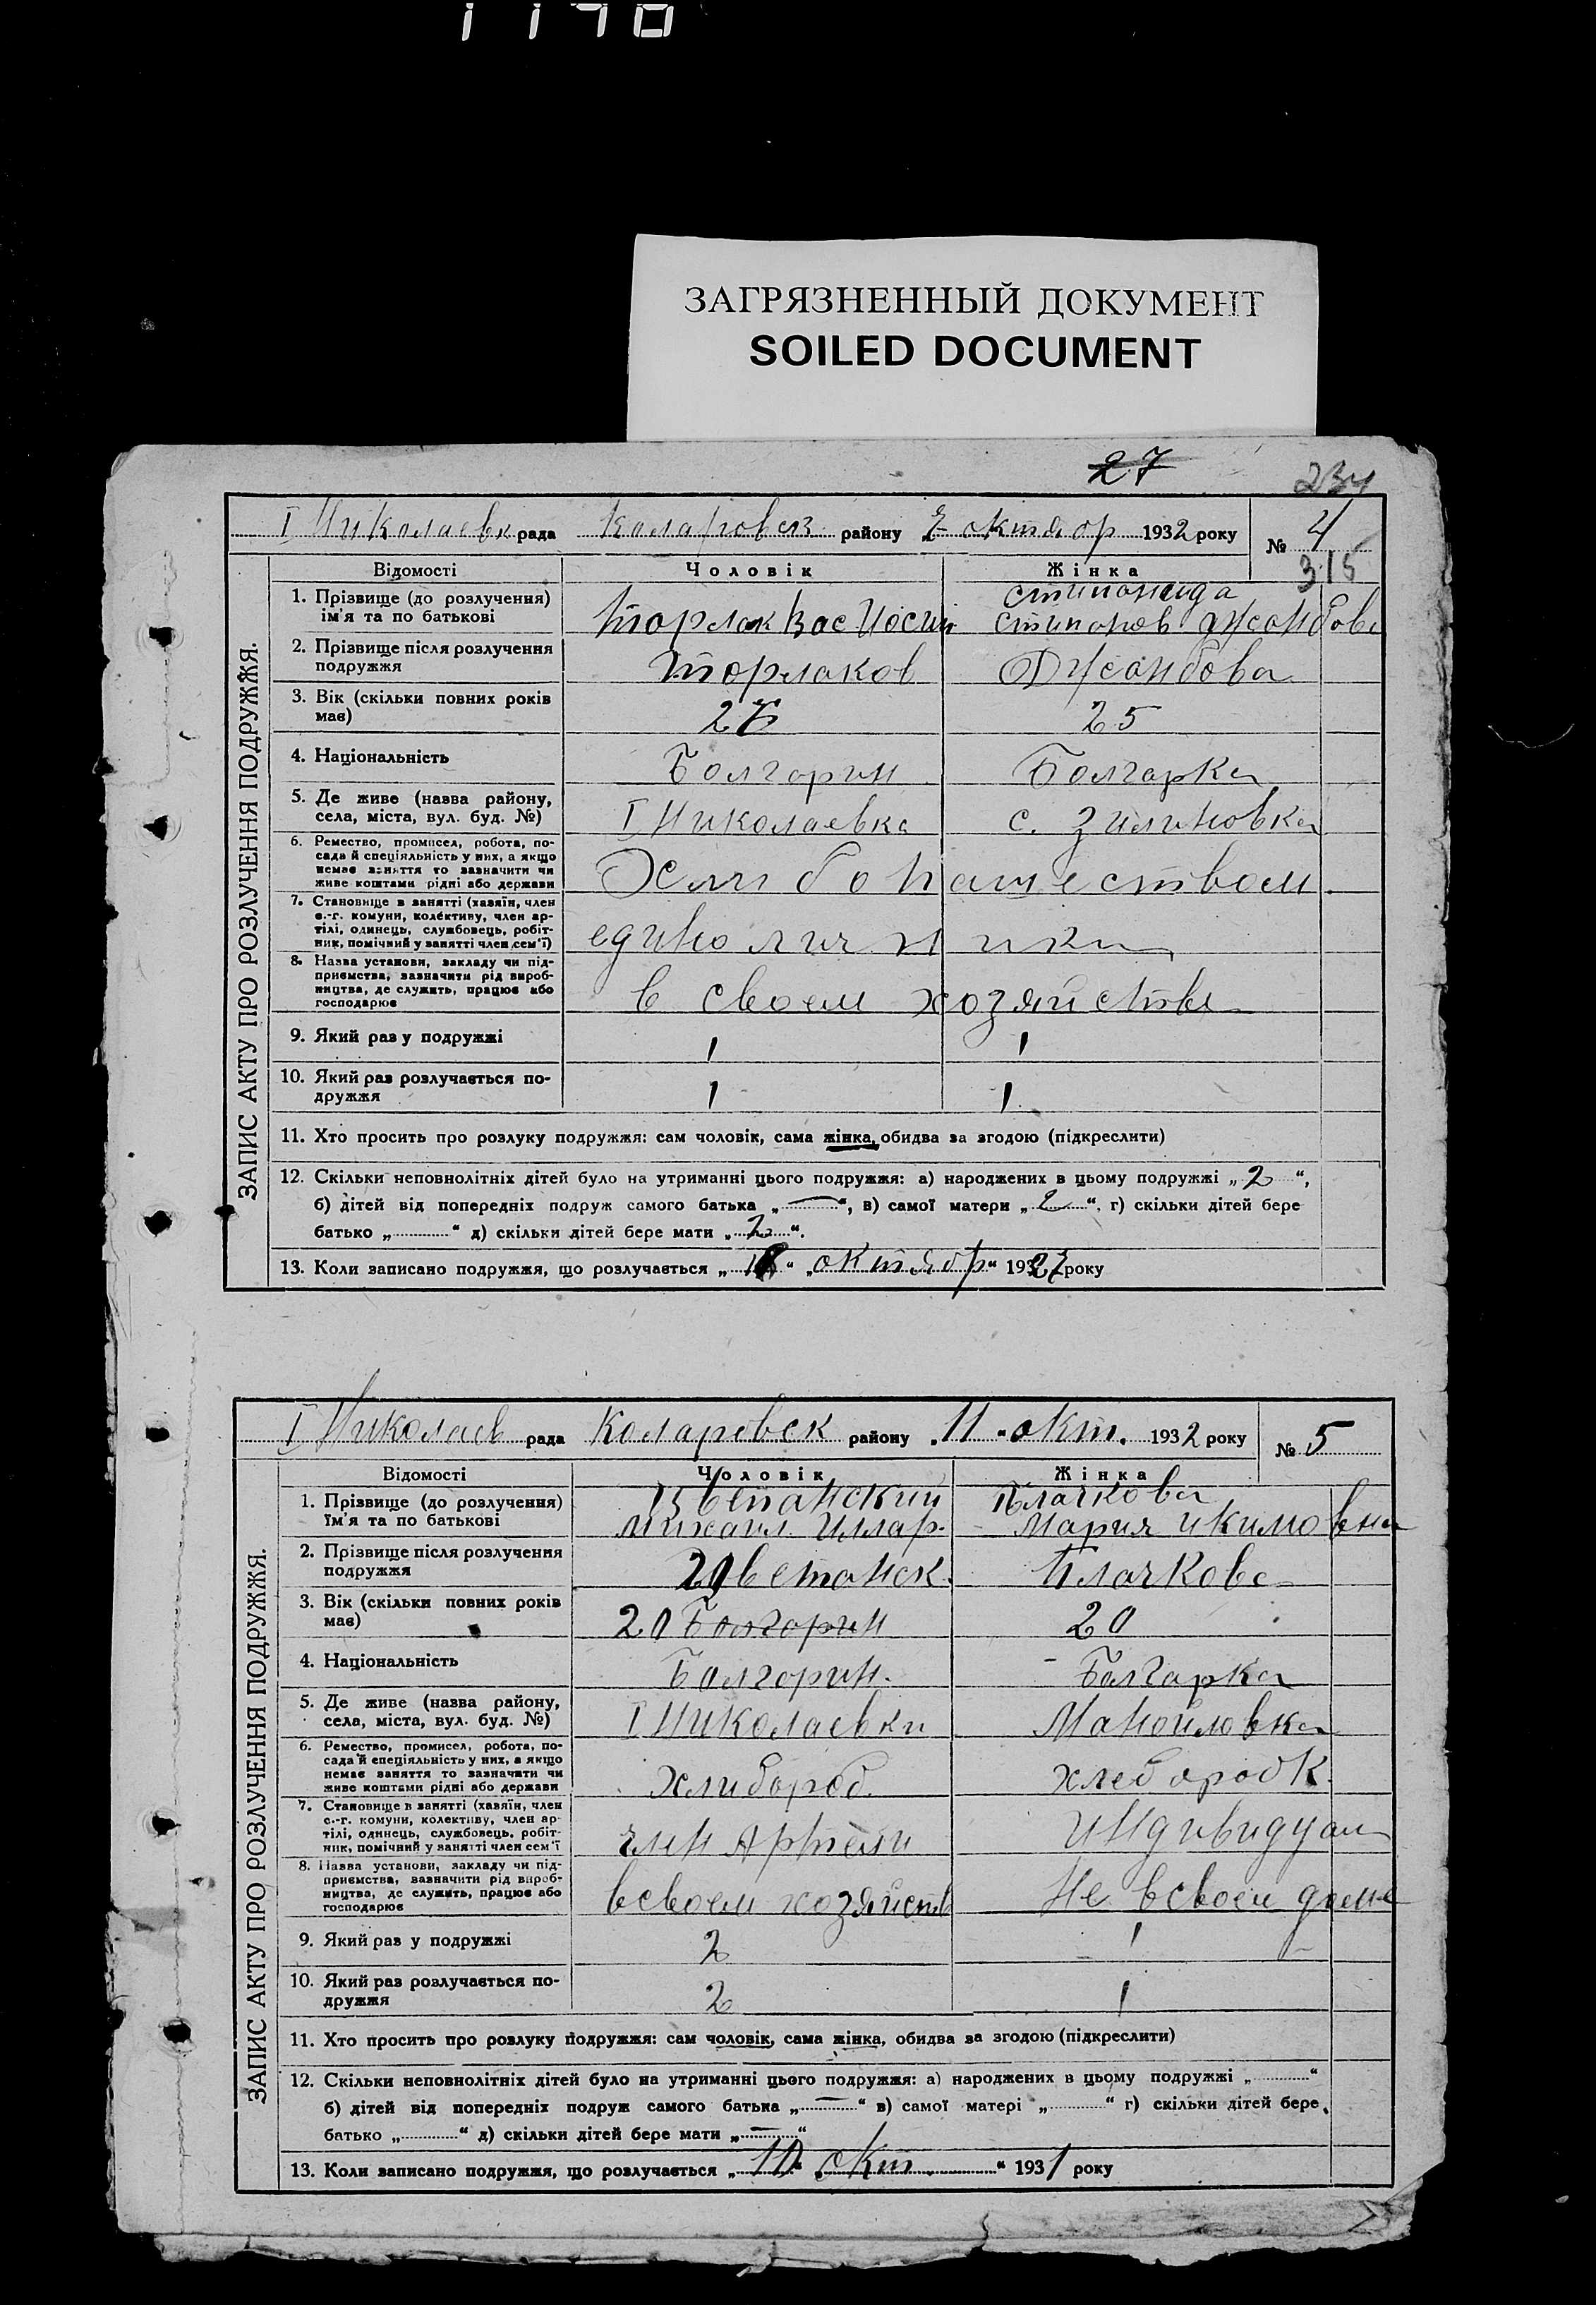 ЗАГРЯЗНЕННЫЙ ДОКУМЕНТ
SOILED DOCUMENT
27
234
I Николаевк рада Коларовск району 7 октябр 1932 року № 4
315
ЗАПИС АКТУ ПРО РОЗЛУЧЕННЯ ПОДРУЖЖЯ.
Відомості Чоловік Жінка
1. Прізвище (до розлучення) ім'я та по батькові
Торлак Вас Иосип
степанида
степанов Джамбова
2. Прізвище після розлучення подружжя
Торлаков Джамбова
3. Вік (скільки повних років має)
25
4. Національність
Болгорин Болгарка
5. Де живе (назва району, села, міста, вул. буд. №)
I Николаевка с. Зилиновка
6. Ремество, промисел, робота, посада й спеціяльність у них, а якщо немає заняття то зазначити чи живе коштами рідні або держави
Хлибопашеством
7. Становище в занятті (хазяїн, член с.-г. комуни, колективу, член артілі, одинець, службовець, робітник, помічний у занятті член сем'ї)
единоличники
8. Назва установи, закладу чи підприємства, зазначити рід виробництва, де служить, працює або господарює
в своем хозяйстве
9. Який раз у подружжі
1 1
10. Який раз розлучається подружжя
1 1
11. Хто просить про розлуку подружжя: сам чоловік, сама жінка, обидва за згодою (підкреслити)
12. Скільки неповнолітніх дітей було на утриманні цього подружжя: а) народжених в цьому подружжі „ 2 “,
б) дітей від попередніх подруж самого батька „ — “, в) самої матери „ 2 “. г) скільки дітей бере
батько „ “ д) скільки дітей бере мати „ 2 “.
13. Коли записано подружжя, що розлучається „ “ „ октябр “ 1927 року
I Николаев рада Коларовск району „ 11 “ окт. 1932 року № 5
ЗАПИС АКТУ ПРО РОЗЛУЧЕННЯ ПОДРУЖЖЯ.
Відомості Чоловік Жінка
1. Прізвище (до розлучення) їм'я та по батькові
Михаил Иллар.
Плачкова
Мария икимовна
2. Прізвище після розлучення подружжя
Плачкова
3. Вік (скільки повних років має)
20 Болгорин 20
4. Національність
Болгорин. Болгарка
5. Де живе (назва району, села, міста, вул. буд. №)
I Николаевки Манойловка
6. Ремество, промисел, робота, посада й спеціяльність у них, а якщо немає заняття то зазначити чи живе коштами рідні або держави
хлибороб. хлеборобк.
7. Становище в занятті (хазяїн, член с.-г. комуни, колективу, член артілі, одинець, службовець, робітник, помічний у занятті член сем'ї
член Артели индивидуал
8. Назва установи, закладу чи підприємства, зазначити рід виробництва, де служить, працює або господарює
в своем хозяйств Не в своем доме
9. Який раз у подружжі
2 1
10. Який раз розлучається подружжя
2 1
11. Хто просить про розлуку подружжя: сам чоловік, сама жінка, обидва за згодою (підкреслити)
12. Скільки неповнолітніх дітей було на утриманні цього подружжя: а) народжених в цьому подружжі „ “
б) дітей від попередніх подруж самого батька „ — “ в) самої матері „ “ г) скільки дітей бере
батько „ “ д) скільки дітей бере мати „ — “
13. Коли записано подружжя, що розлучається „ 10 “ „ окт. “ 1931 року